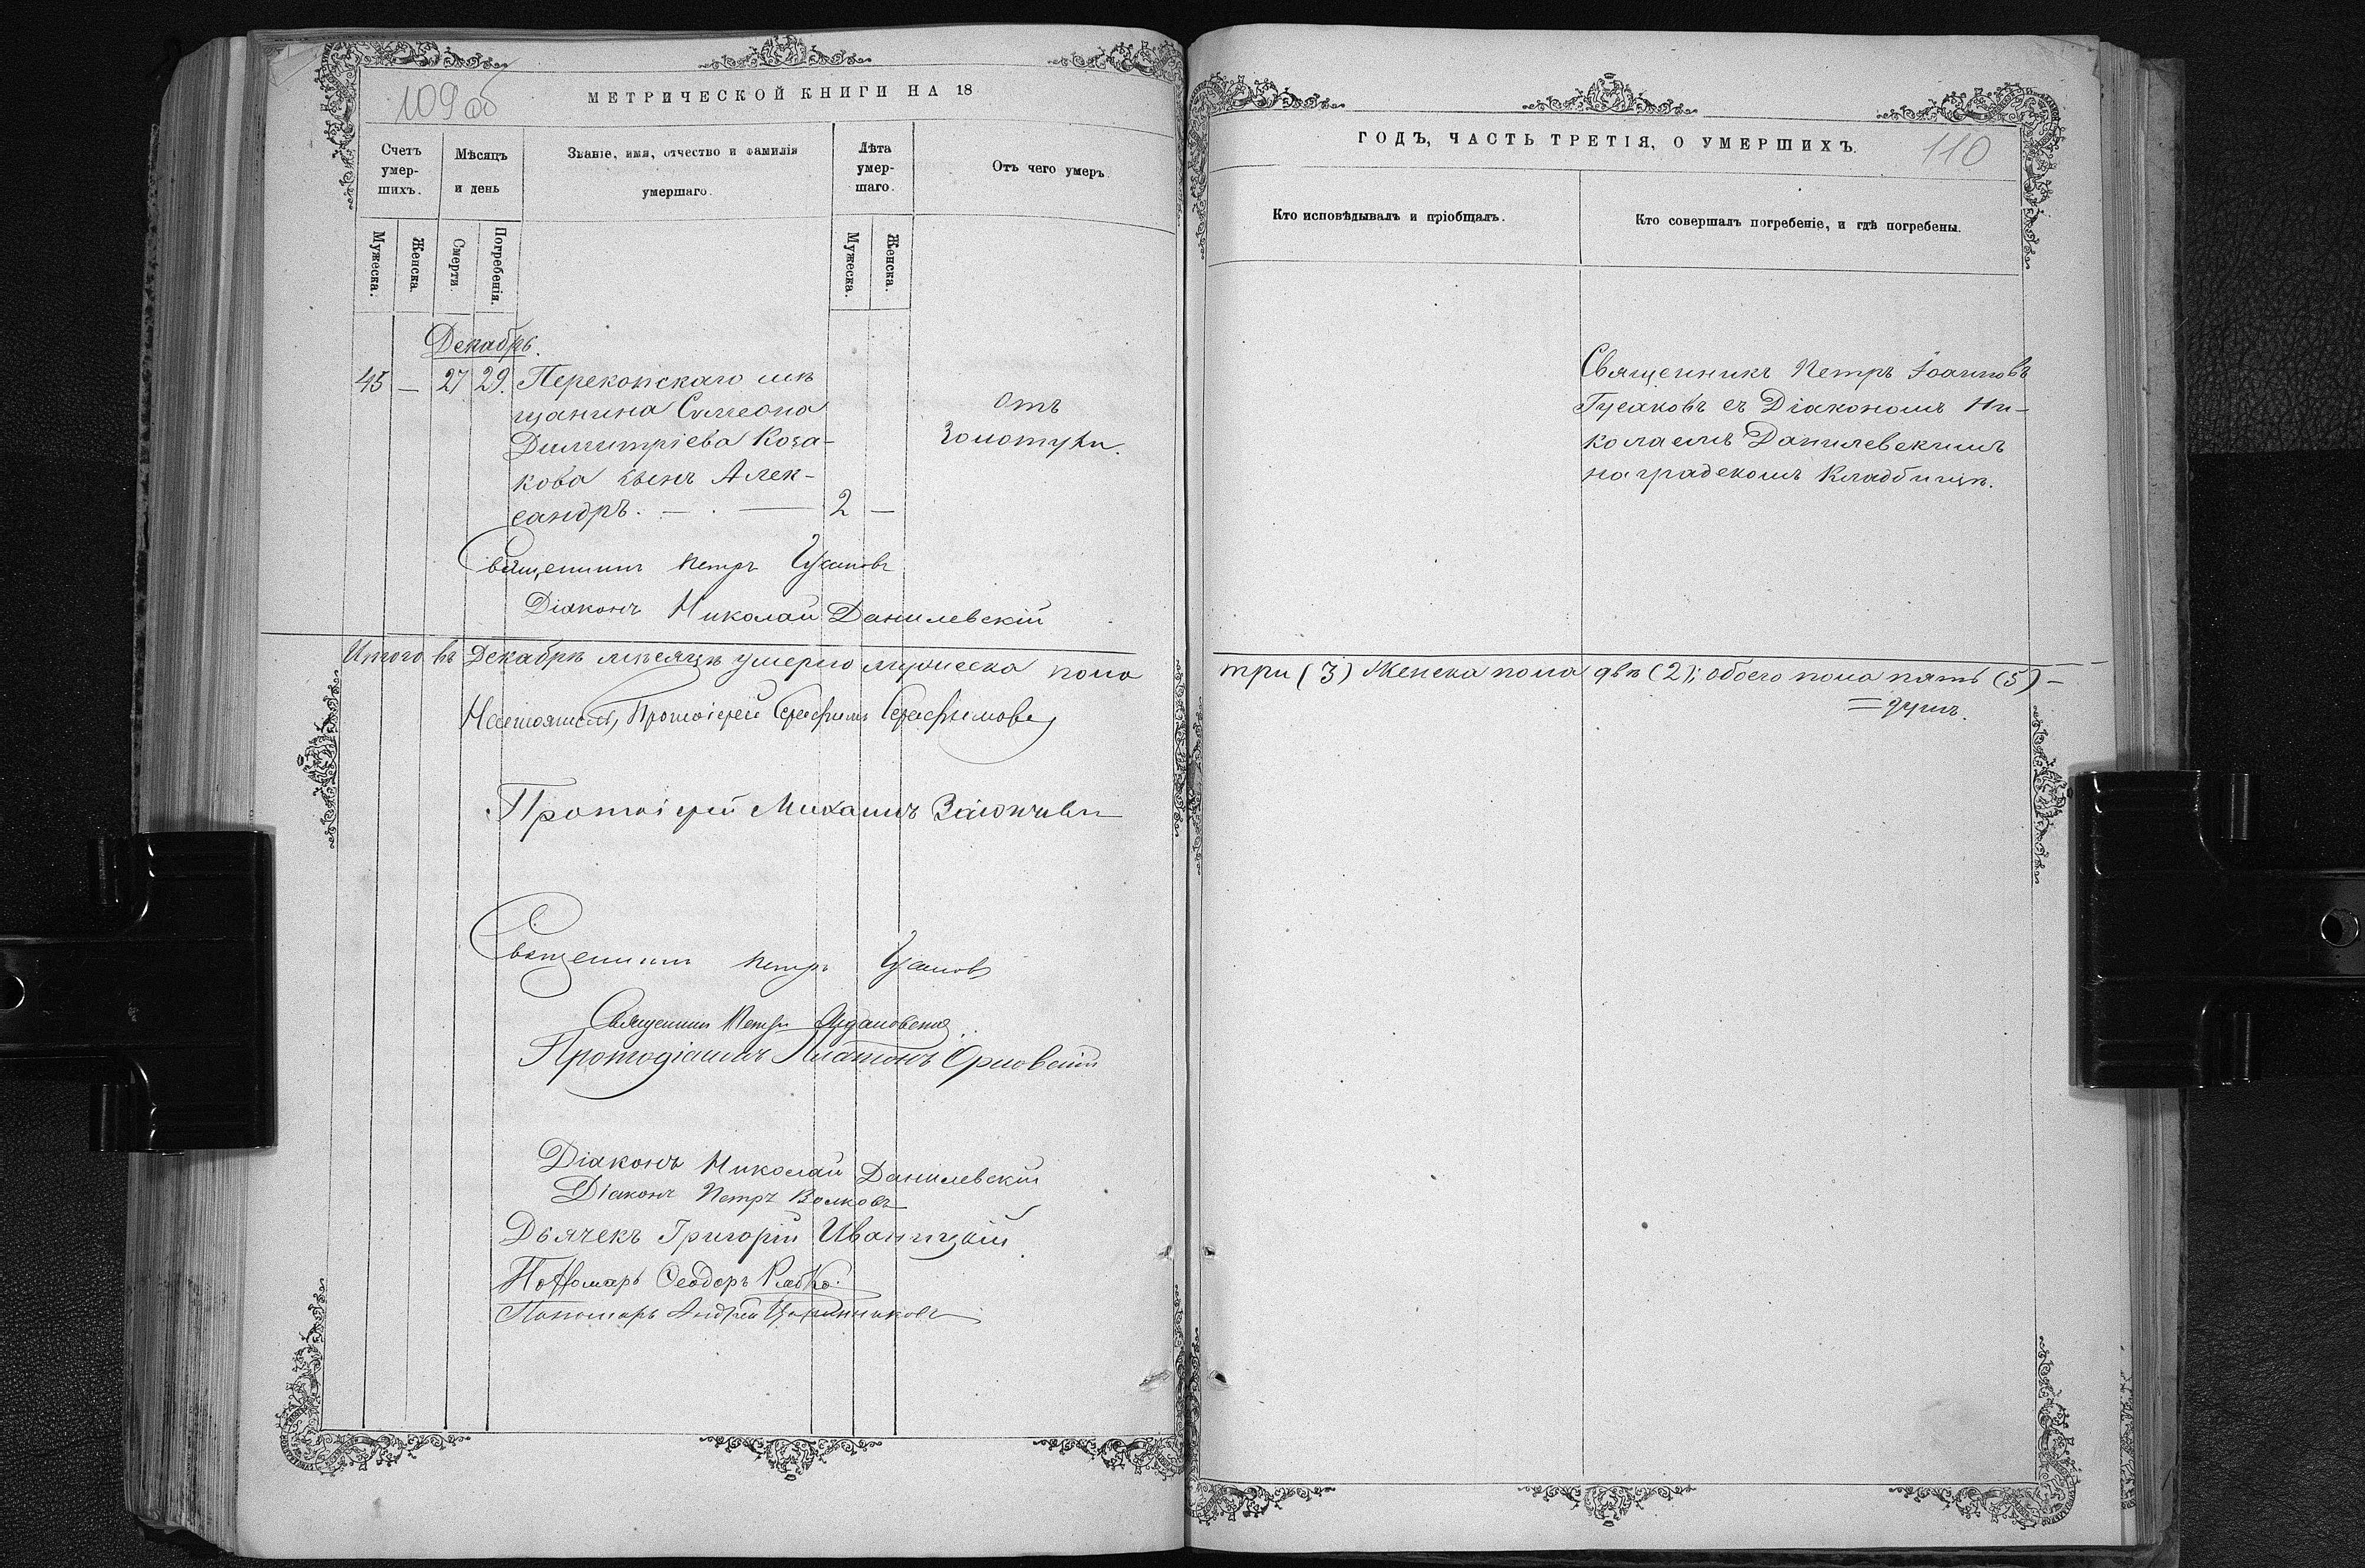 109 об
МЕТРИЧЕСКОЙ КНИГИ НА 18
Счетъ умер-шихъ.
Мѣсяцъ и день
Званіе, имя, отчество и фамилія умершаго.
Лѣта умер-шаго.
Отъ чего умеръ
Мужеска.
Женска.
Смерти.
Погребенія.
Мужеска.
Женска.
Декабрь.
45 — 27 29. Перекопскаго мѣ-
щанина Симеона
Димитріева Коза-
кова сынъ Алек-
сандръ. — . — 2 —
Отъ
Золотухи.
Священникъ Петръ Гусаковъ
Діаконъ Николай Данилевскій
Итого въ Декабрѣ мѣсяцѣ умерло мужеска пола
Настоятель, Протоіерей Серафимъ Серафимовъ
Протоіерей Михаилъ
Священникъ Петръ Гусаковъ
Священникъ Петръ
Протодіаконъ Платонъ Орловскій
Діаконъ Николай Данилевскій
Діаконъ Петръ Волковъ
Дьячекъ Григорій Иваницкій
Пономарь Ѳеодоръ
Пономарь Андрей
ГОДЪ, ЧАСТЬ ТРЕТІЯ, О УМЕРШИХЪ.
110
Кто исповѣдывалъ и пріобщалъ.
Кто совершалъ погребеніе, и гдѣ погребены.
Священникъ Петръ Іоанновъ
Гусаковъ съ Діакономъ Ни-
колаемъ Данилевскимъ
на градскомъ Кладбищѣ.
три (3) Женска пола двѣ (2); обоего пола пять (5) —
= душъ.